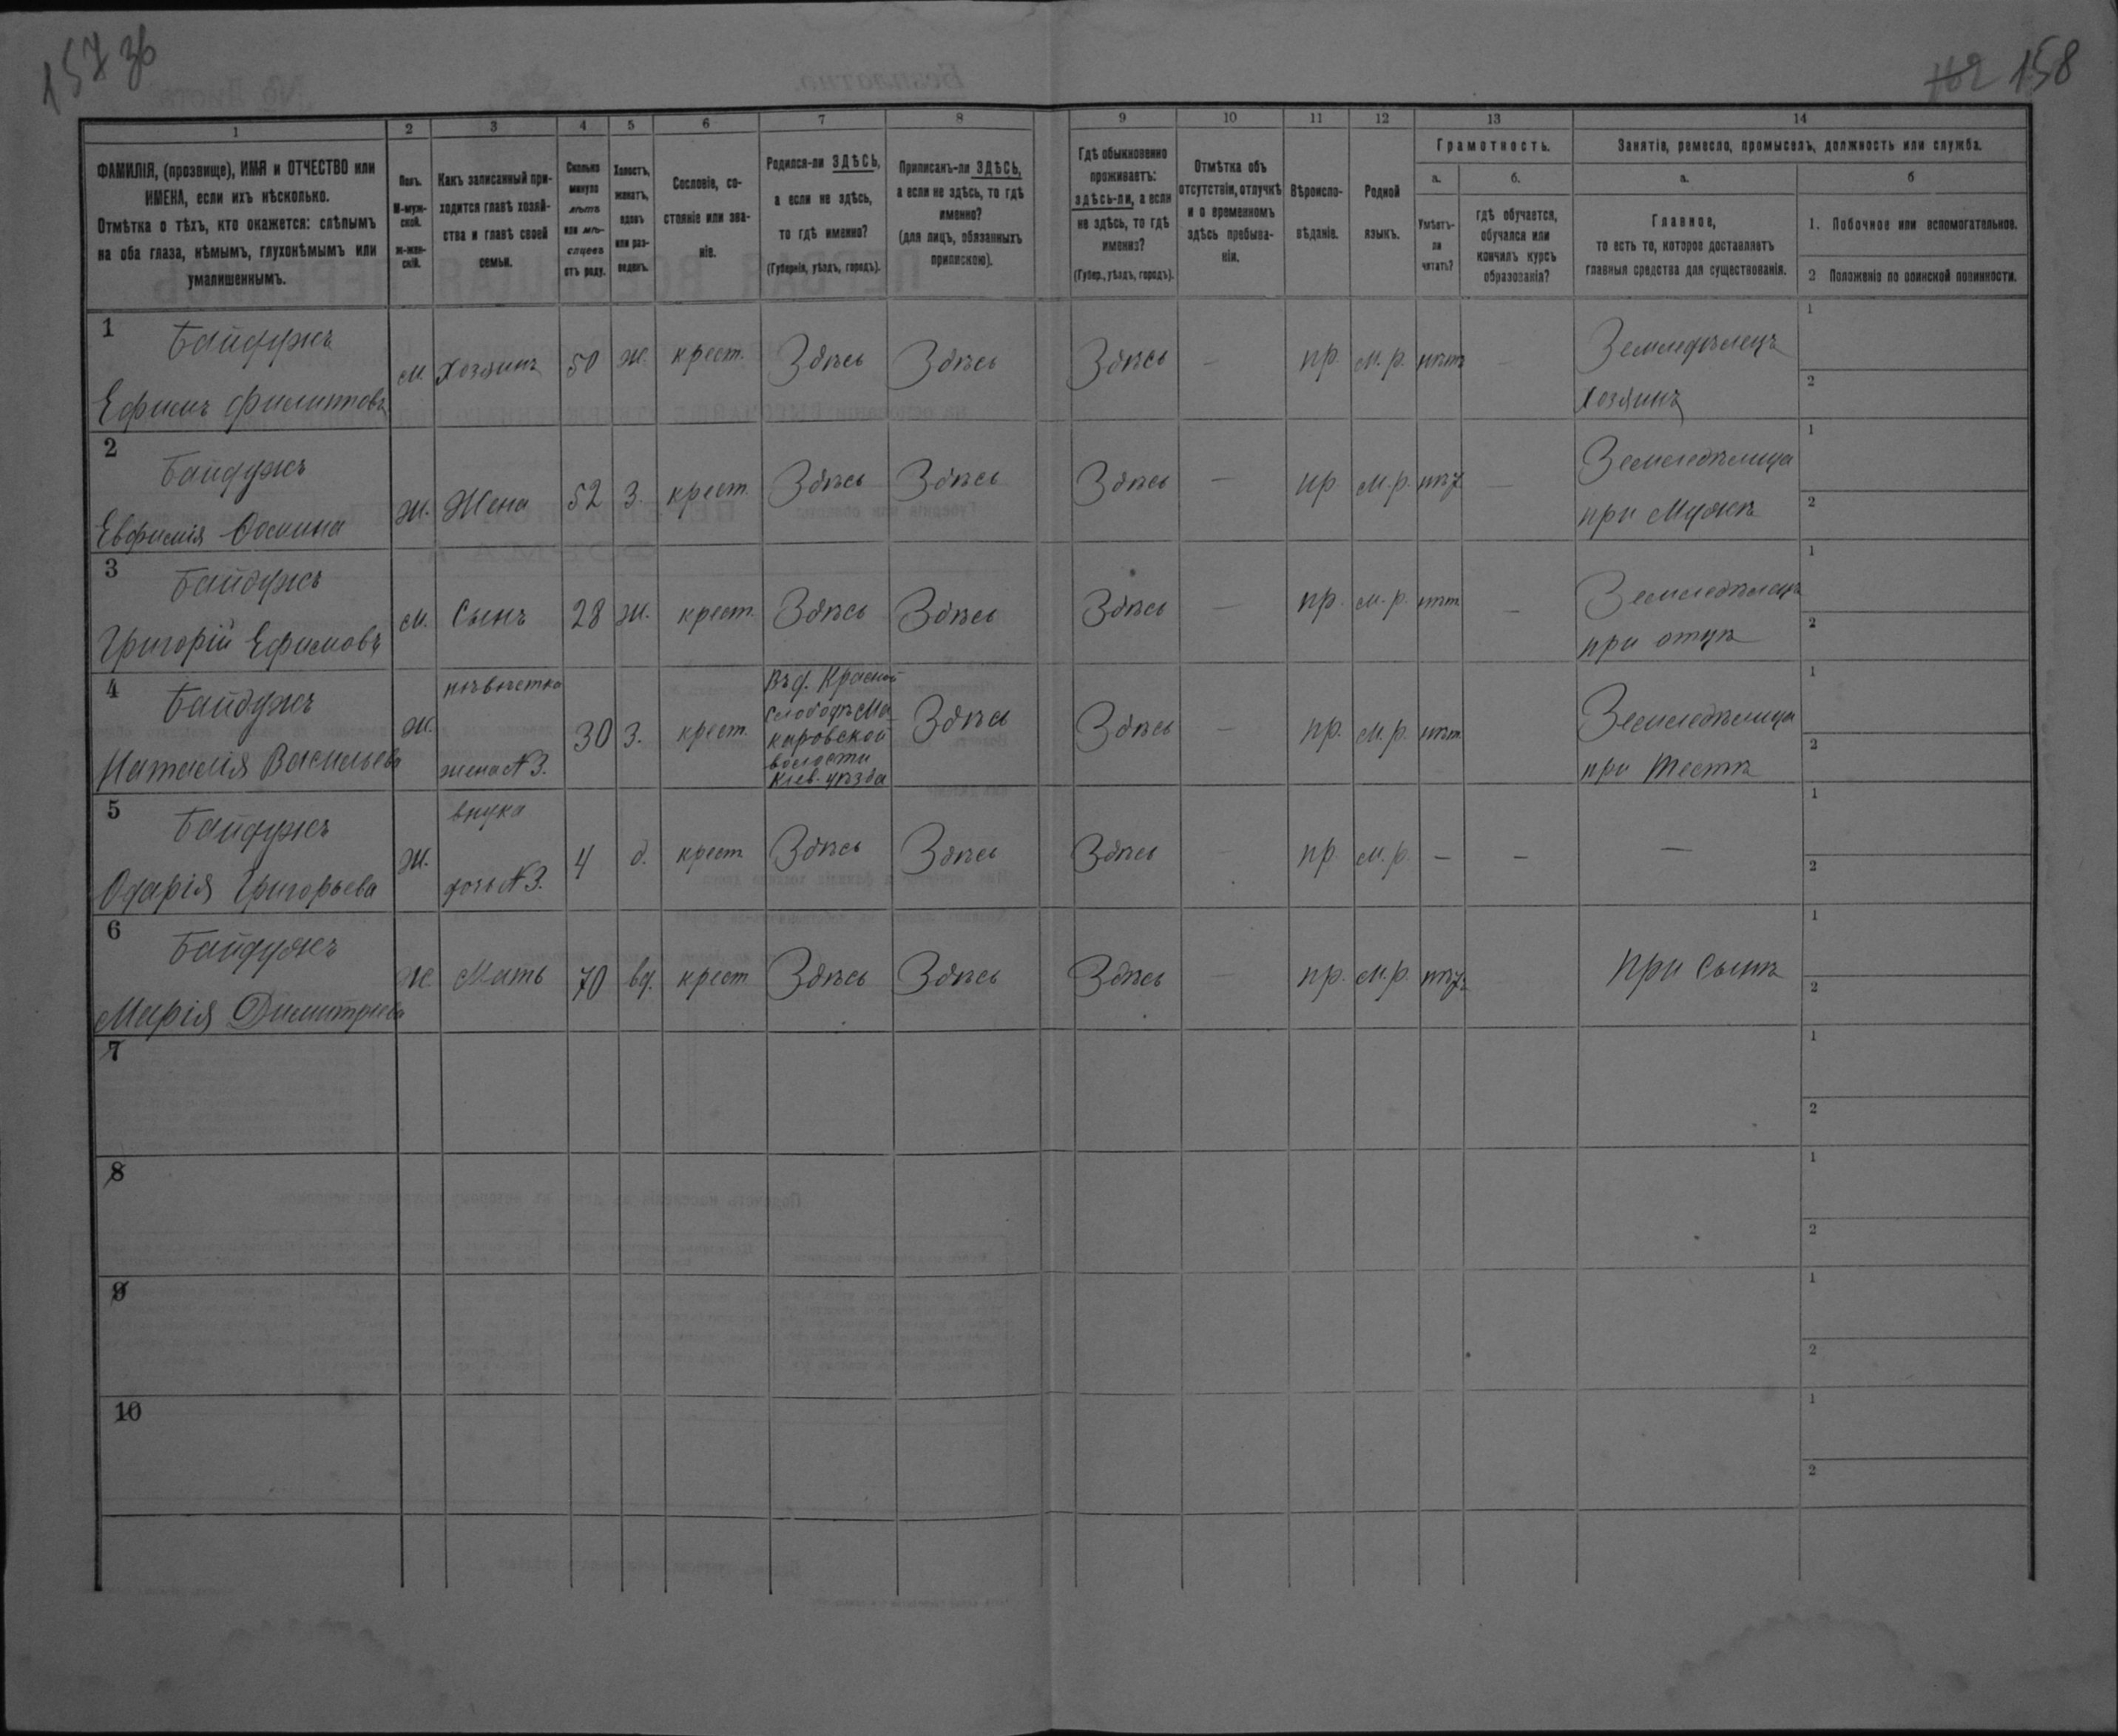 157 зв
162 158
1 2 3 4 5 6 7 8 9 10 11 12 13 14
ФАМИЛІЯ, (прозвище), ИМЯ и ОТЧЕСТВО или
ИМЕНА, если ихъ нѣсколько.
Отмѣтка о тѣхъ, кто окажется: слѣпымъ
на оба глаза, нѣмымъ, глухонѣмымъ или
умалишеннымъ.
Полъ.
М-муж-
ской.
ж-жен-
скій.
Какъ записанный при-
ходится главѣ хозяй-
ства и главѣ своей
семьи.
Сколько
минуло
лѣтъ
или мѣ-
сяцевъ
отъ роду.
Холостъ,
женатъ,
вдовъ
или раз-
веденъ.
Сословіе, со-
стояніе или зва-
ніе.
Родился-ли ЗДѢСЬ,
а если не здѣсь,
то гдѣ именно?
(Губернія, уѣздъ, городъ).
Приписанъ-ли ЗДѢСЬ,
а если не здѣсь, то гдѣ
именно?
(для лицъ, обязанныхъ
припискою).
Гдѣ обыкновенно
проживаетъ:
здѣсь-ли, а если
не здѣсь, то гдѣ
именно?
(Губер., уѣздъ, городъ).
Отмѣтка объ
отсутствіи, отлучкѣ
и о временномъ
здѣсь пребыва-
ніи.
Вѣроиспо-
вѣданіе.
Родной
языкъ.
Грамотность.
а. б.
Умѣетъ-
ли
читать?
гдѣ обучается,
обучался или
кончилъ курсъ
образованія?
Занятіе, ремесло, промыселъ, должность или служба.
а. б
Главное,
то есть то, которое доставляетъ
главныя средства для существованія.
1. Побочное или вспомогательное.
2 Положеніе по воинской повинности.
1 Байдужъ
Ефимъ Филипповъ
м. Хозяинъ 50 ж. крест. Здѣсь Здѣсь Здѣсь — пр. м. р. нѣтъ —
Земледѣлецъ
Хозяинъ
1
2
2 Байдужъ
Евфимія
ж. Жена 52 З. крест. Здѣсь Здѣсь Здѣсь — пр м. р. нѣтъ —
Земледѣлица
при Мужѣ
1
2
3 Байдужъ
Григорій Ефимовъ
м. Сынъ 28 ж. крест. Здѣсь Здѣсь Здѣсь — пр. м. р. нѣтъ —
Земледѣлецъ
при отцѣ
1
2
4 Байдужъ
Наталія Васильева
ж.
невѣстка
жена №3.
30 З. крест.
Въ д. Красной
Слободѣ Ма-
каровской
волости
Кіев. уѣзда
Здѣсь Здѣсь — пр. м. р. нѣтъ
Земледѣлица
при Тестѣ
1
2
5 Байдужъ
Одарія Григорьева
ж.
внука
дочь №3.
4 д. крест Здѣсь Здѣсь Здѣсь — пр. м. р. — — —
1
2
6 Байдужъ
Марія Димитріева
ж. Мать 70 вд. крест Здѣсь Здѣсь Здѣсь — пр. м. р. нѣтъ
При Сынѣ
1
2
7
1
2
8
1
2
9
1
2
10
1
2